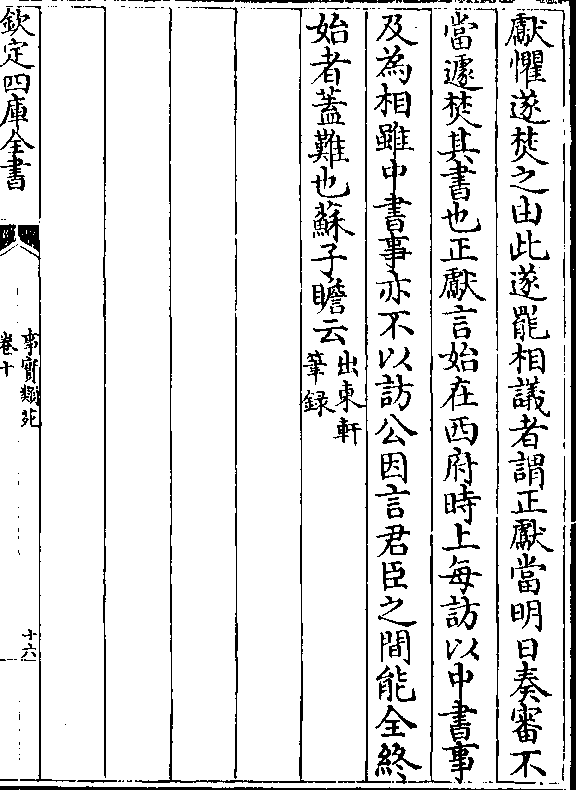 獻懼遂焚之由此遂罷相議者謂正獻當明日奏審不
當遽焚其書也正獻言始在西府時上每訪以中書事
及為相雖中書事亦不以訪公因言君臣之間能全終
始者蓋難也蘇子瞻云出東軒筆録
欽定四庫全書
事實類苑
卷十
十六